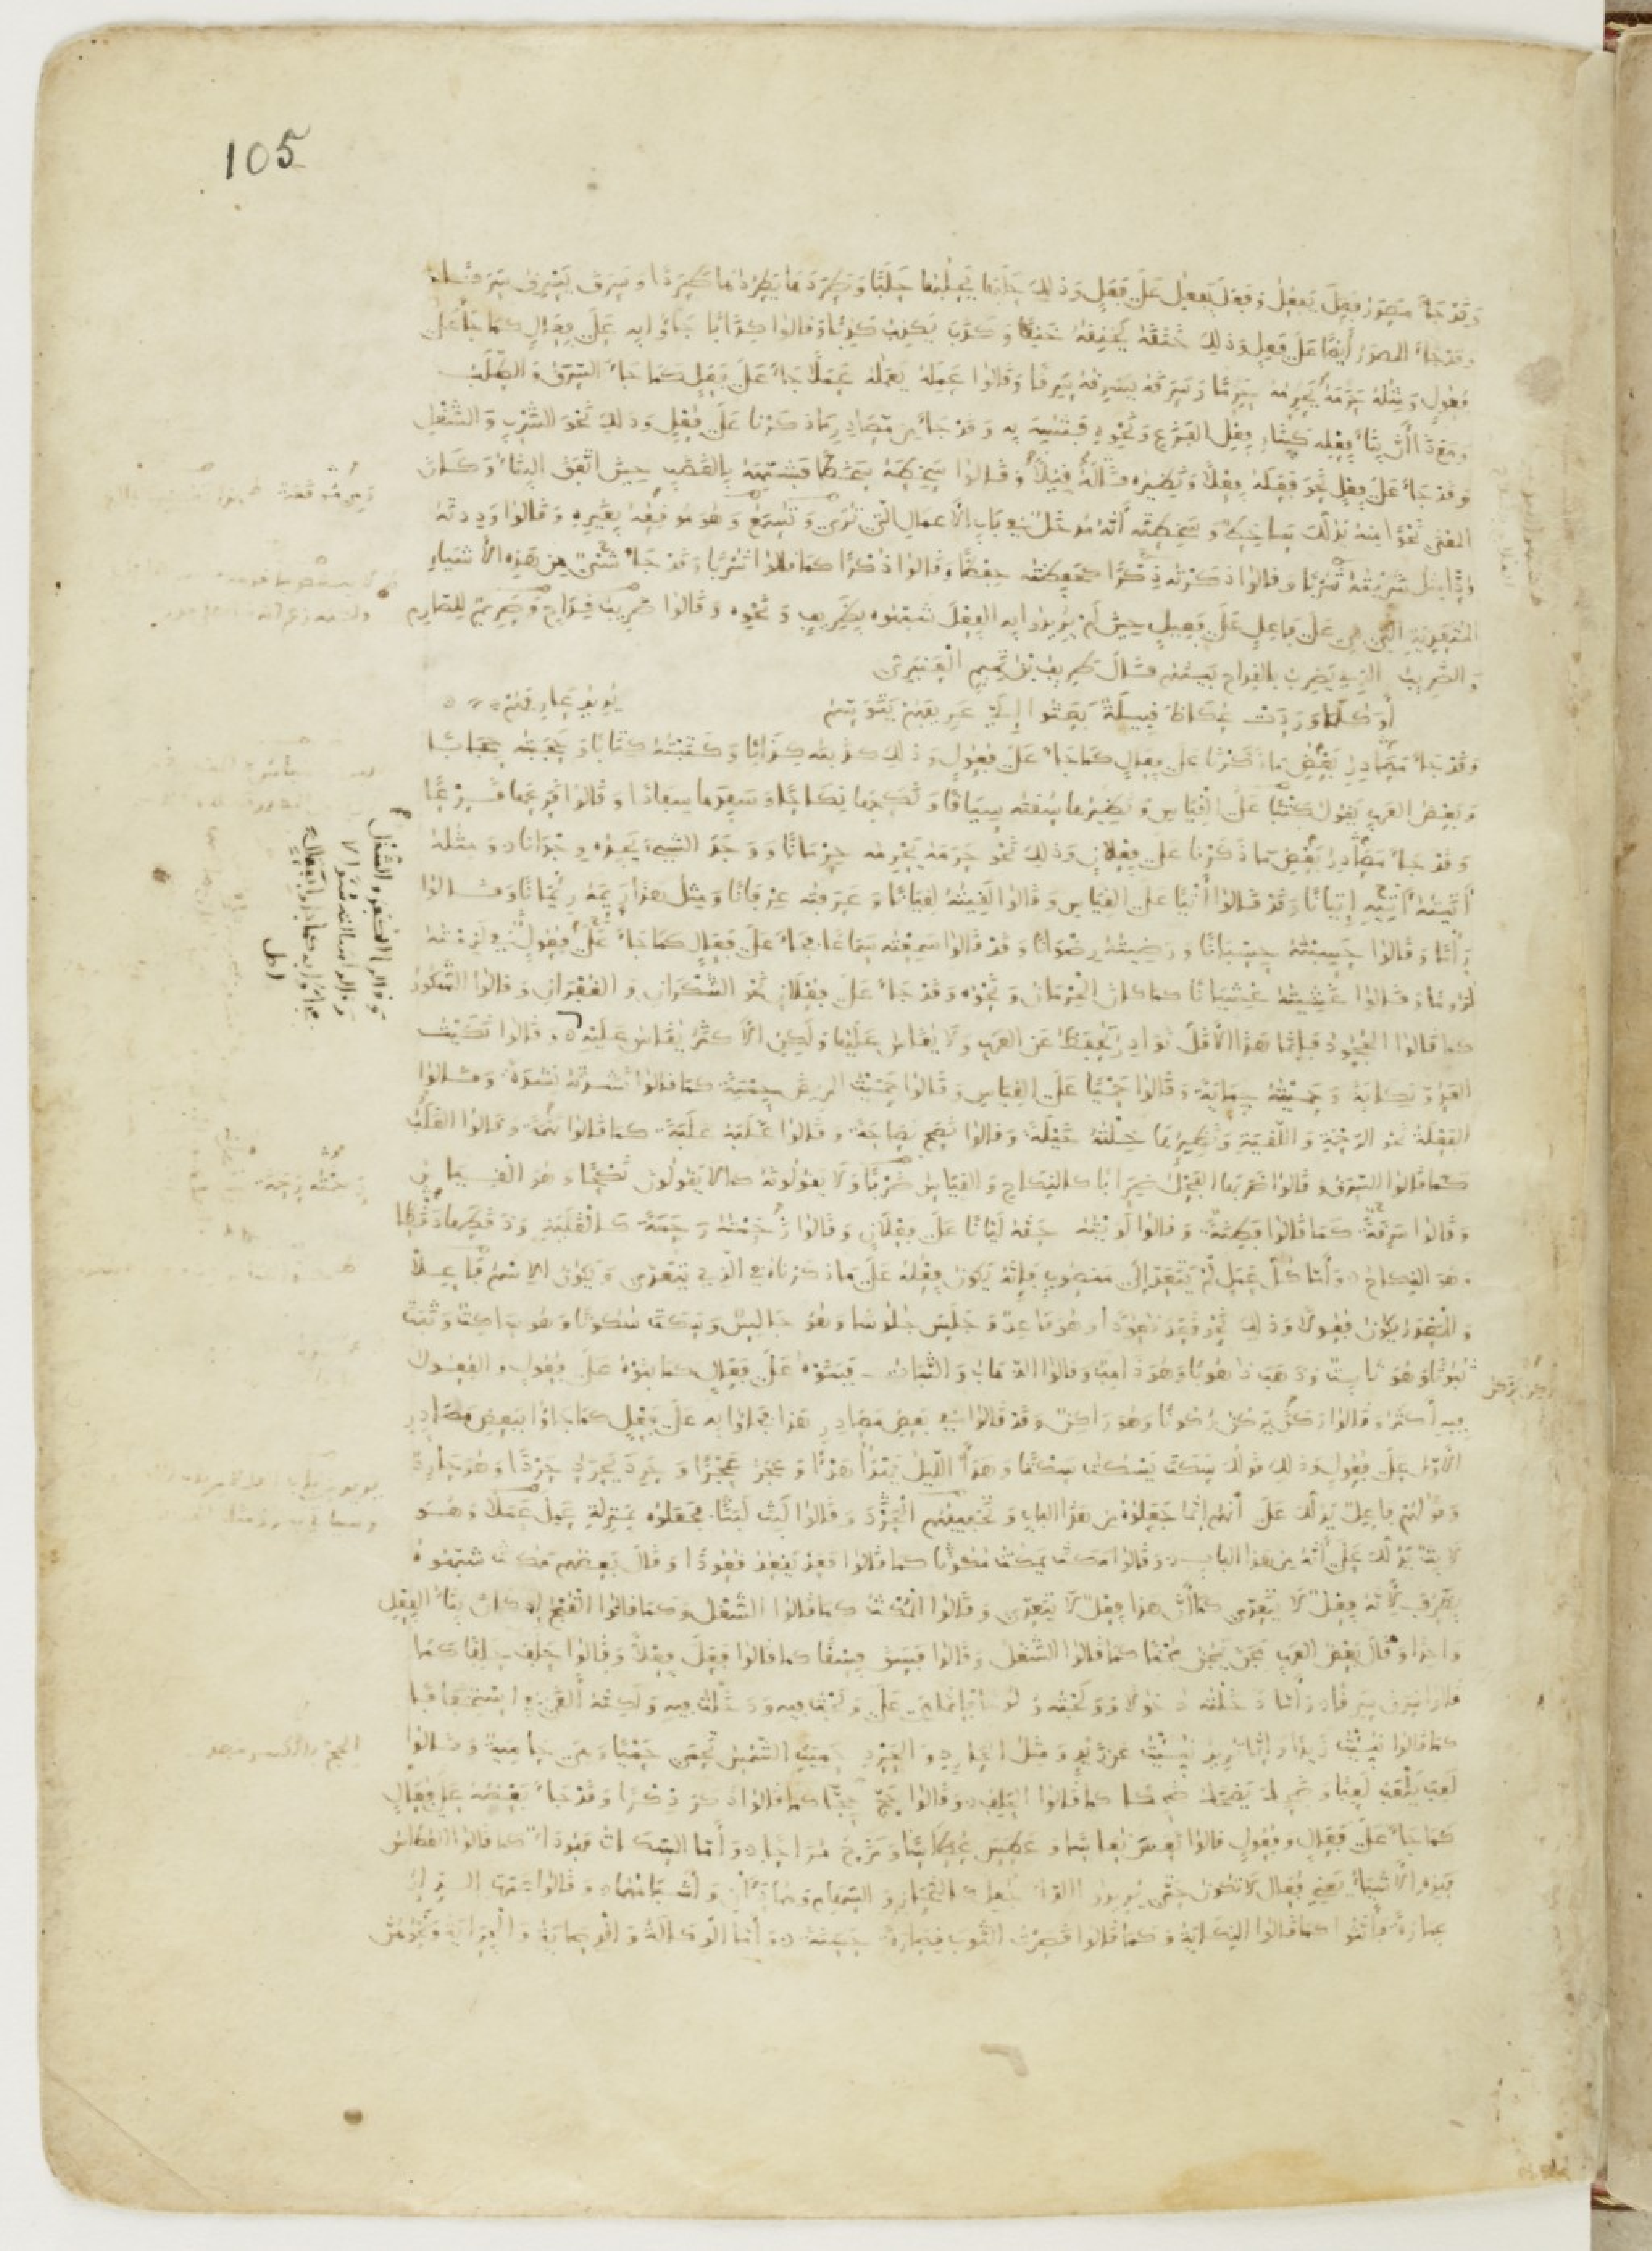 105
وقد جاء مصدر فعل يفعل وفعل يفعل على فعل وذلك حلبها يحلبها حلبا وطردها يطردها طردا وسرق يسرق سرقا
وقد جاء المصدر أيضا على فعل وذلك خنقه يخنقه خنقا وكذب يكذب كذبا وقالوا كذابا جاؤا به على فعال كما جاء على
فعول ومثله حرمه يحرمه حرما وسرقه يسرقه سرقا وقالوا عمله يعمله عملا جاء على فعل كما جاء السرق والطلب
ومع ذا أن بناء فعله كبناء فعل الفزع ونحوه فشبه به وقد جاء من مصادر ما ذكرنا على فعل وذلك نحو الشرب والشغل
وقد جاء على فعل نحو فعله فعلا ونظيره قاله قيلا وقالوا سخطه سخطا شبهوه بالغضب حين اتفق البناء وكان
المعنى نحوا منه يدلك ساخط وسخطته أنه مدخل في باب الأعمال التي ترى وتسمع وهو موقعه بغيره وقالوا وددته
ودا مثل شربته شربا وقالوا ذكرته ذكرا كحفظته حفظا وقالوا ذكرا كما قالوا شربا وقد جاء شيء من هذه الأشياء
المتعدية التي هي على فاعل على فعيل حين لم يريدوا به الفعل شبهوه بظريف ونحوه وقالوا ضريب قداح وصريم للصارم
والضريب الذي يضرب بالقداح بينهم قال طريف بن تميم العنبري
أو كلما وردت عكاظ قبيلة بعثوا إلي عريفهم يتوسم
يريد عارفهم
وقد جاء مصادر بعض ما ذكرنا على فعال كما جاء على فعول وذلك كذبته كذابا وكتبته كتابا وحجبته حجابا
وبعض العرب يقول كتبا على القياس ونظيرها سقته سياقا ونكحها نكاحا وسفدها سفادا وقالوا قرعها قرعا
وقد جاء مصادر بعض ما ذكرنا على فعلان وذلك نحو حرمه يحرمه حرمانا ووجد الشيء يجده وجدانا ومثله
أتيته آتيه إتيانا وقد قالوا أتيا على القياس وقالوا لقيته لقيانا وعرفته عرفانا ومثل هذا رئمه رئمانا وقالوا
رأما وقالوا حسبته حسبانا ورضيته رضوانا وقد قالوا سمعته سماعا فجاء على فعال كما جاء على فعول في لزمته
لزوما وقالوا غشيته غشيانا كما كان الحرمان ونحوه وقد جاء على فعلان نحو الشكران والغفران وقالوا الشكور
كما قالوا الجحود فإنما هذا الأقل نوادر تحفظ عن العرب ولا يقاس عليها ولكن الأكثر يقاس عليه وقالوا نكيت
العدو نكاية وحميته حماية وقالوا حميا على القياس وقالوا حميت المريض حمية كما قالوا نشدته نشدة وقالوا
الفعلة نحو الرحمة واللقية ونظيرها خلته خيلة وقالوا نصح نصاحة وقالوا غلبه غلبة كما قالوا نهمة وقالوا الغلب
كما قالوا السرق وقالوا ضربها الفحل ضرابا كالنكاح والقياس ضربا ولا يقولونه كما لا يقولون نكحا وهو القياس
وقالوا سرقة كما قالوا فطنة وقالوا لويته حقه ليانا على فعلان وقالوا رحمته رحمة كالغلبة ودقطها دقطا
وهو النكاح وأما كل عمل لم يتعد إلى منصوب فإنه يكون فعله على ما ذكرناه في الذي يتعدى ويكون الاسم فاعلا
والمصدر يكون فعولا وذلك نحو قعد قعودا وهو قاعد وجلس جلوسا وهو جالس وسكت سكوتا وهو ساكت وثبت
ثبوتا وهو ثابت وذهب ذهوبا وهو ذاهب وقالوا الذهاب والثبات فبنوه على فعال كما بنوه على فعول والفعول
فيه أكثر وقالوا ركن يركن ركونا وهو راكن وقد قالوا في بعض مصادر هذا فجاؤا به على فعل كما جاؤا ببعض مصادر
الأول على فعول وذلك قولك سكت يسكت سكتا وهدأ الليل يهدأ هدءا وعجز عجزا وحرد يحرد حردا وهو حارد
وقولهم فاعل يدلك على أنهم إنما جعلوه من هذا الباب وتخفيفهم الحرد وقالوا لبث لبثا فجعلوه بمنزلة عمل عملا وهو
لابث يدلك على أنه من هذا الباب وقالوا مكث يمكث مكوثا كما قالوا قعد يقعد قعودا وقال بعضهم مكث شبهوه
بظرف لأنه فعل لا يتعدى كما أن هذا فعل لا يتعدى وقالوا المكث كما قالوا الشغل وكما قالوا القبح إذ كان بناء الفعل
واحدا وقال بعض العرب مجن يمجن مجنا كما قالوا الشغل وقالوا فسق فسقا كما قالوا فعل فعلا وقالوا حلف حلفا كما
قالوا سرق سرقا وأما دخلته دخولا وولجته ولوجا فإنما هي على ولجت فيه ودخلت فيه ولكنه ألقي في استخفافا
كما قالوا نبئت زيدا وإنما تريد نبئت عن زيد ومثل الحارد والحرد حميت الشمس تحمى حميا وهي حامية وقالوا
لعب يلعب لعبا وضحك يضحك ضحكا كما قالوا الحلف وقالوا حج حجا كما قالوا ذكر ذكرا وقد جاء بعضه على فعال
كما جاء على فعال وفعول قالوا نعس نعاسا وعطس عطاسا ومزح مزاحا وأما السكات فهو داء كما قالوا العطاس
فهذه الأشياء يعني فعال لا تكون حتى تريد الداء جعل كالنحاز والسهام وهما داءان وأشباههما وقالوا عمرت الدار
عمارة فأنثوا كما قالوا النكاية وكما قالوا قصرت الثوب قصارة حسنة وأما الوكالة والوصاية والجراية ونحوهن